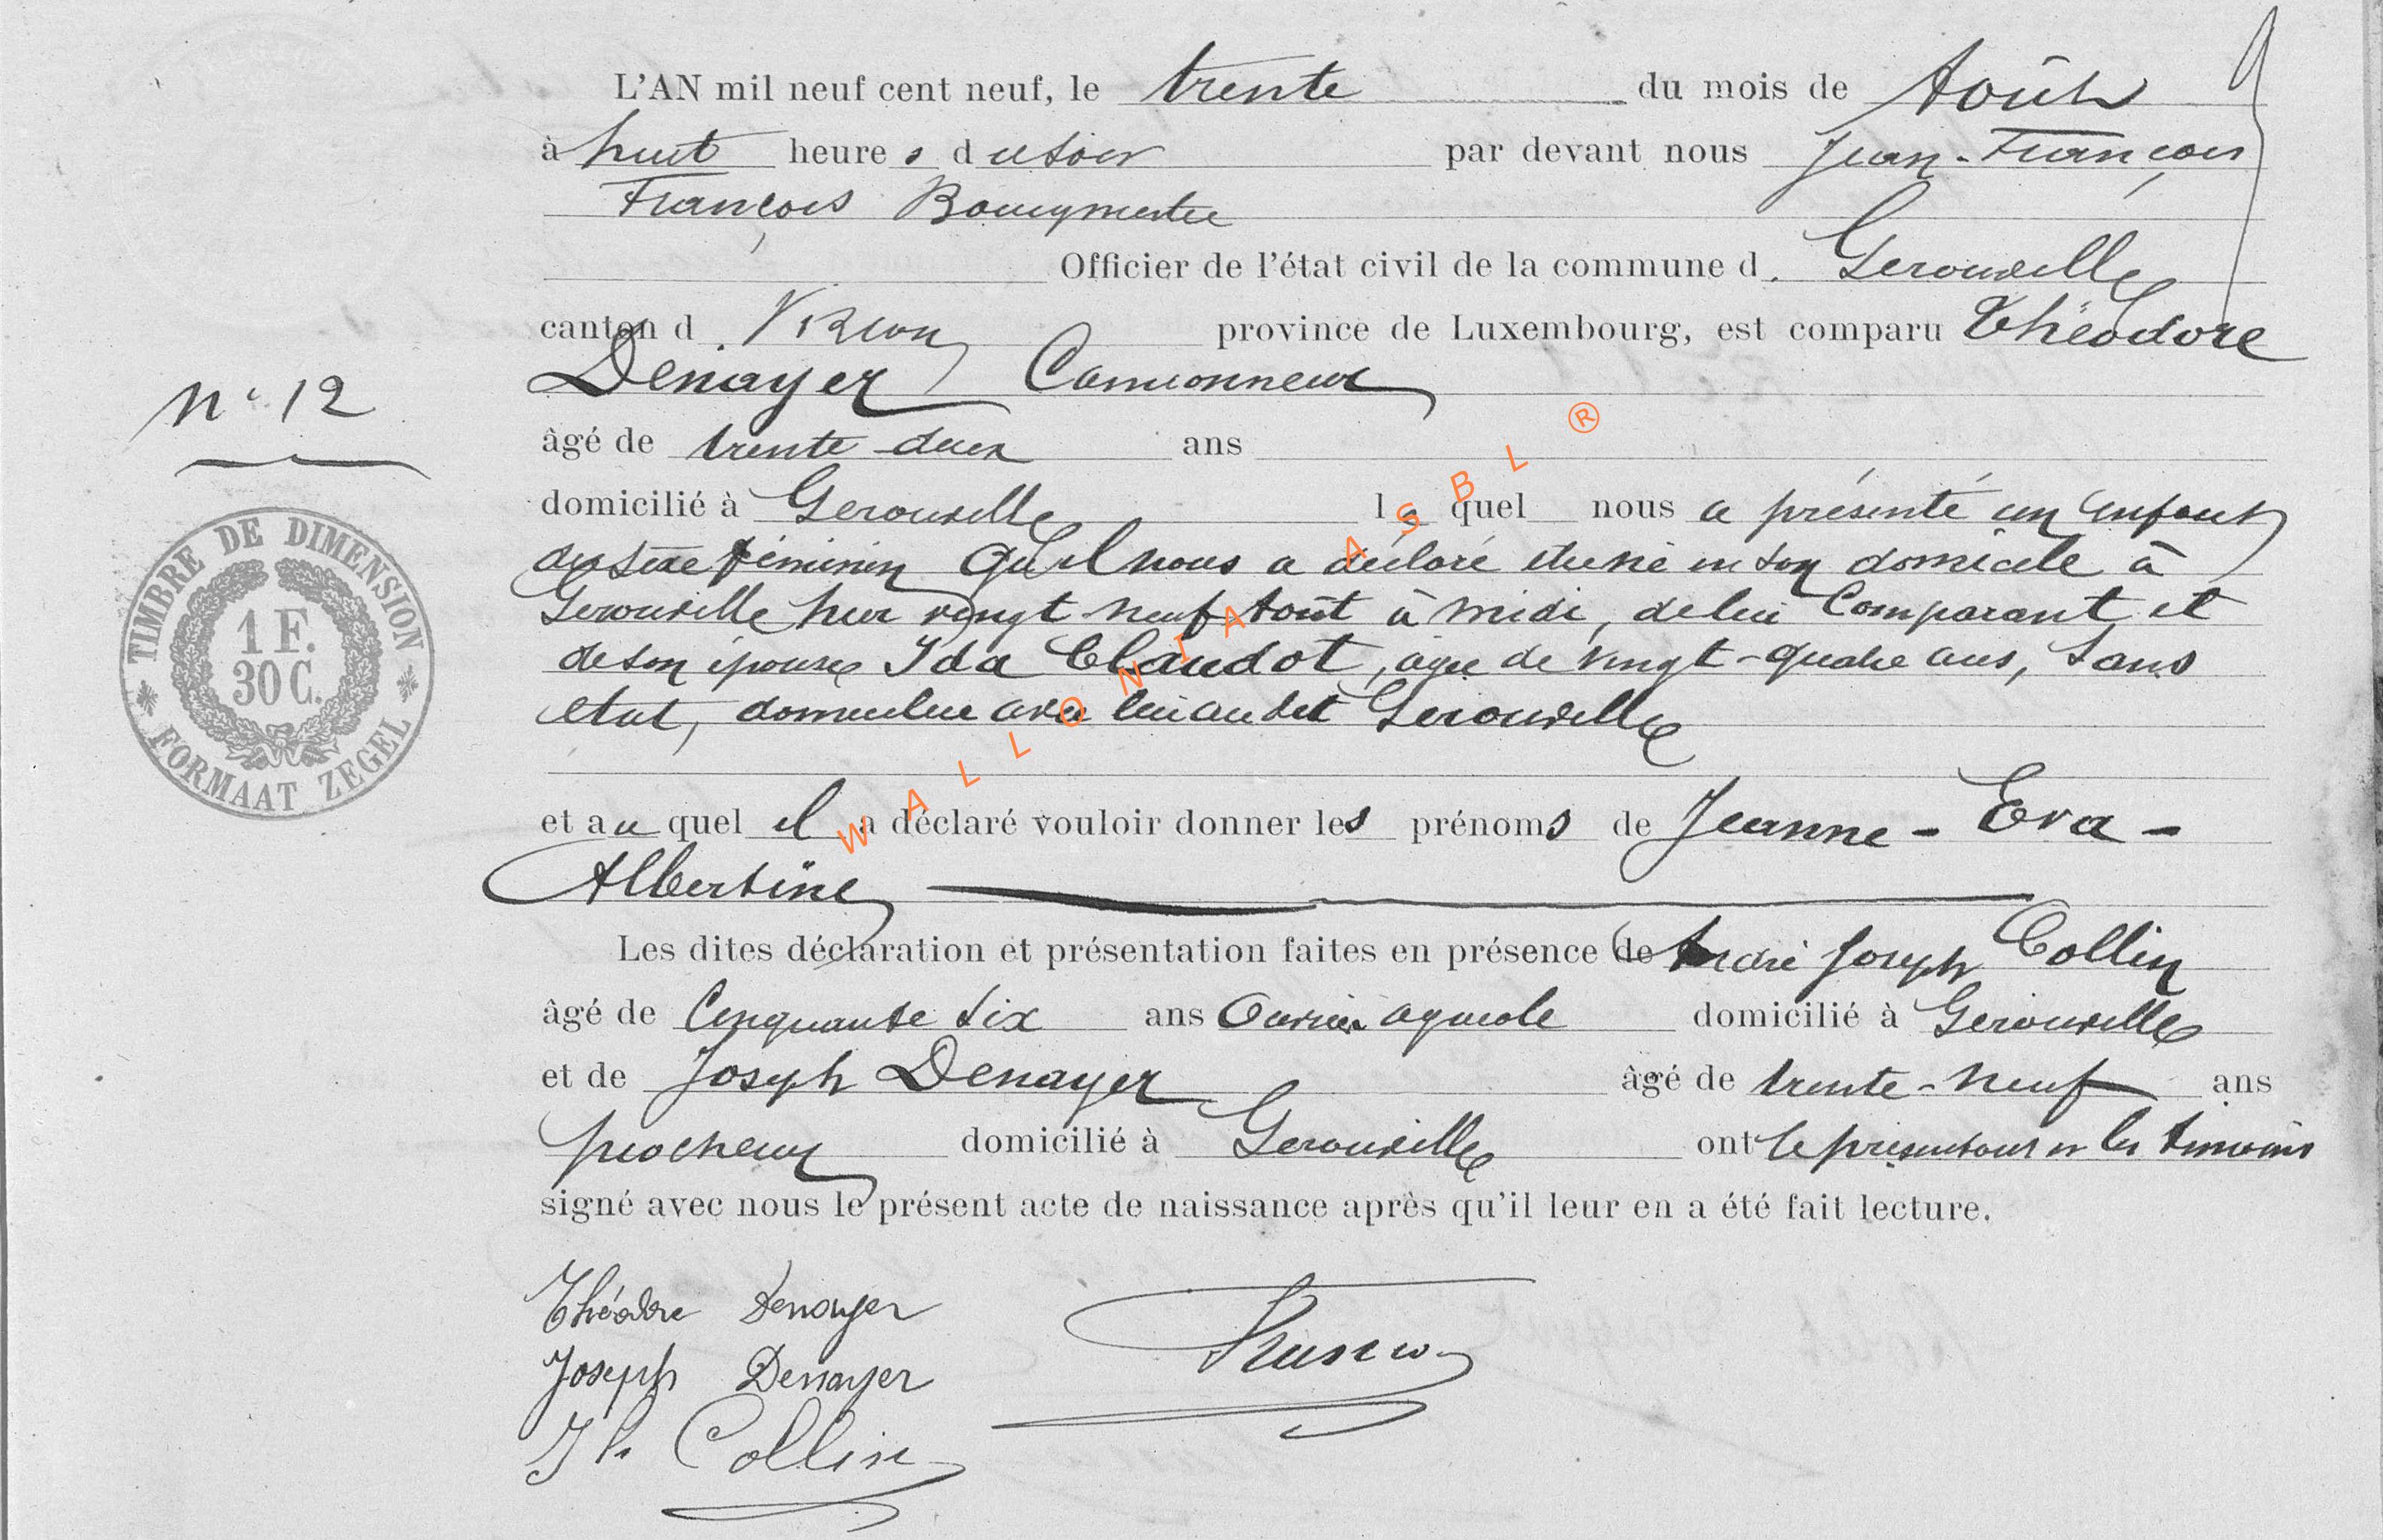 L'AN mil neuf cent neuf, le trente du mois de Août
à huit heures du soir par devant nous Jean-François
François Bourgmestre
Officier de l'état civil de la commune d. Gerouville
canton d. Virton province de Luxembourg, est comparu Théodore
Denayer Camionneur
N° 12
âgé de trente-deux ans
domicilié à Gerouville lequel nous a présenté un enfant
du sexe féminin qu'il nous a déclaré être né en son domicile à
Gerouville hier vingt-neuf Août à midi, de lui Comparant et
de son épouse Ida Claudot, agée de vingt-quatre ans, sans
état, domiciliée avec lui au dit Gerouville
et auquel il a déclaré vouloir donner les prénoms de Jeanne - Eva -
Albertine
Les dites déclaration et présentation faites en présence de André Joseph Collin
âgé de Cinquante six ans Ouvrier agricole domicilié à Gerouville
et de Joseph Denayer âgé de trente-neuf ans
piocheur domicilié à Gerouville ont le présentant et les témoins
signé avec nous le présent acte de naissance après qu'il leur en a été fait lecture.
Théodore Denayer
Joseph Denayer
Collin
TIMBRE DE DIMENSION
1 F.
30 C.
FORMAAT ZEGEL
WALLONIA ASBL ®